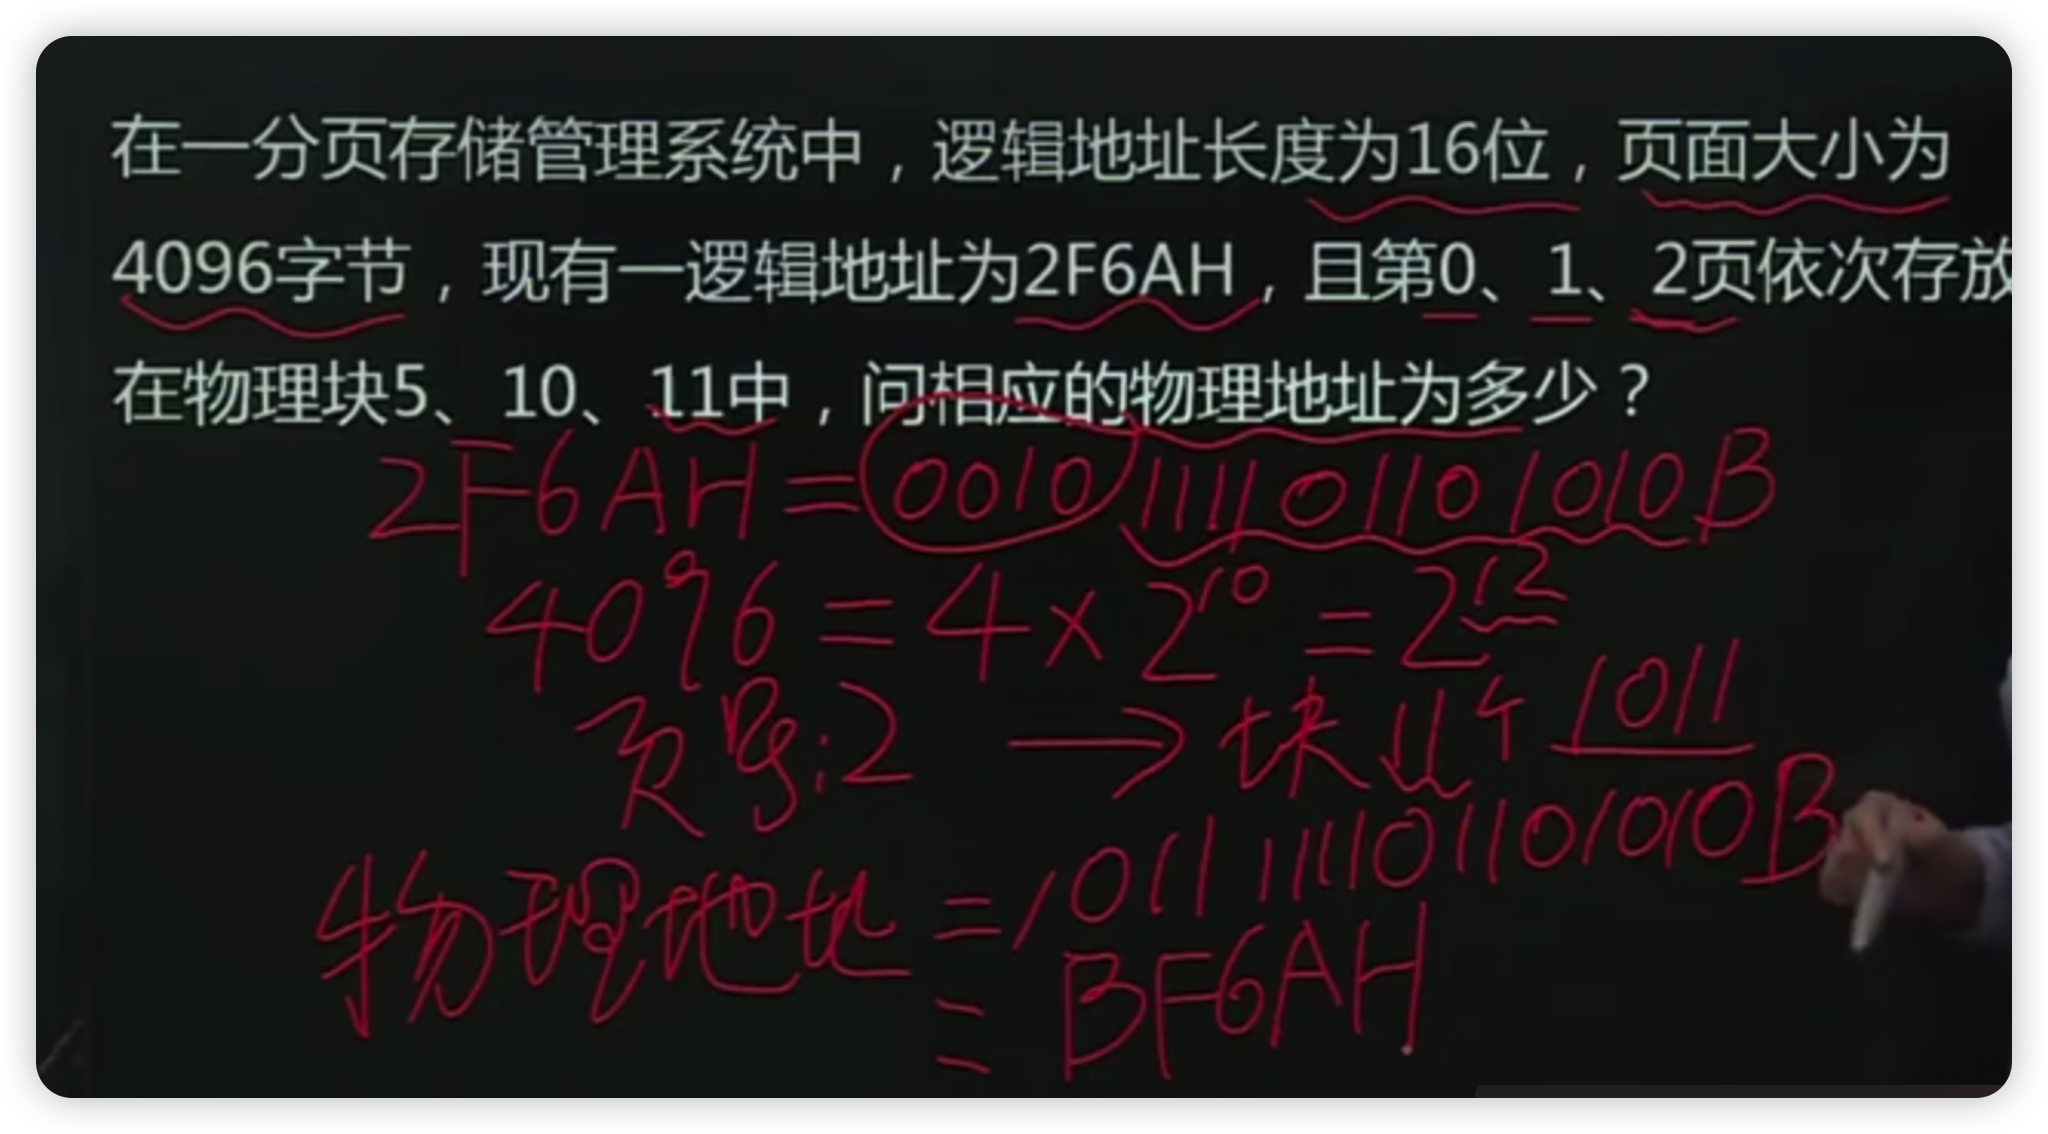 在一分页存储管理系统中，逻辑地址长度为16位，页面大小为
4096字节，现有一逻辑地址为2F6AH，且第0、1、2页依次存放
在物理块5、10、11中，问相应的物理地址为多少？
2F6AH=0010 1111 0110 1010B
4096=4×2¹⁰=2¹²
页号:2 → 块11个 1011
物理地址=1011 1111 0110 1010B
=BF6AH